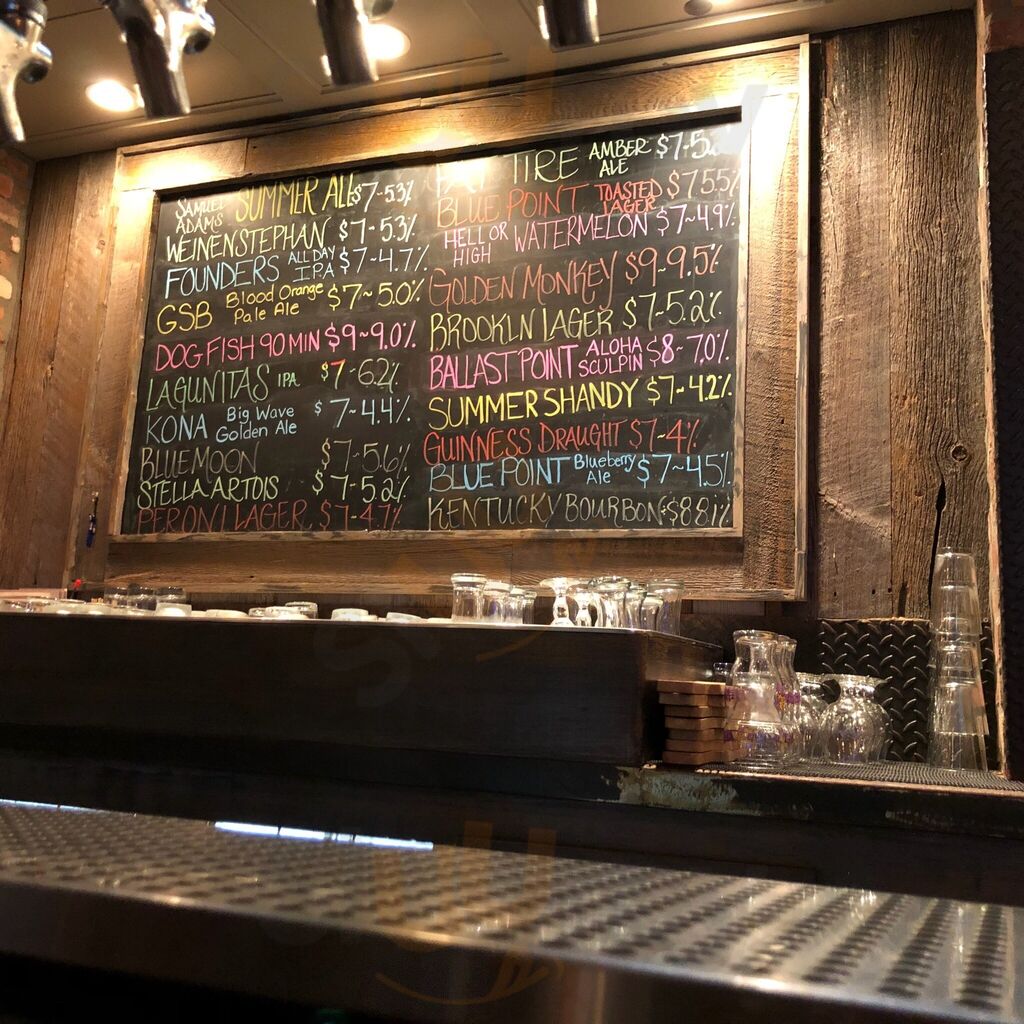 SAMUEL ADAMS SUMMER ALE $7-5.3%
WEINENSTEPHAN $7-5.3%
FOUNDERS ALL DAY IPA $7-4.7%
GSB Blood Orange Pale Ale $7-5.0%
DOGFISH 90 MIN $9-9.0%
LAGUNITAS IPA $7-6.2%
KONA Big Wave Golden Ale $7-4.4%
BLUE MOON $7-5.6%
STELLA ARTOIS $7-5.2%
PERONI LAGER $7-4.7%
TIRE AMBER ALE $7-5.
BLUE POINT TOASTED LAGER $7 5.5%
HELL OR HIGH WATERMELON $7-4.9%
GOLDEN MONKEY $9-9.5%
BROOKLN LAGER $7-5.2%
BALLAST POINT ALOHA SCULPIN $8-7.0%
SUMMER SHANDY $7-4.2%
GUINNESS DRAUGHT $7-4%
BLUE POINT Blueberry Ale $7-4.5%
KENTUCKY BOURBON $8 8.1%